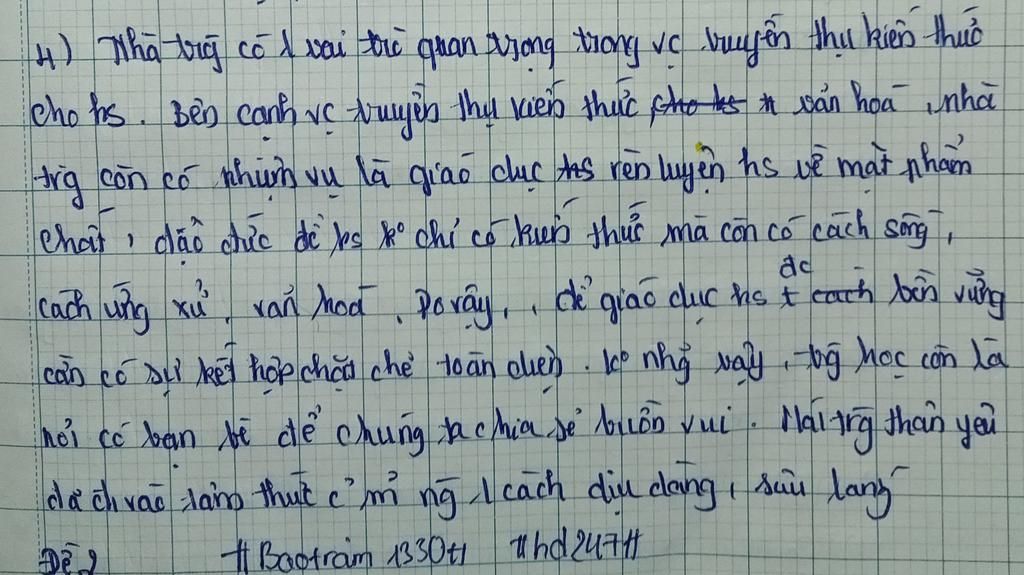 4) Nhà trg có 1 vai trò quan trọng trong vc truyền thụ kiến thức
cho hs. Bên cạnh vc truyền thụ kiến thức cho hs văn hoá, nhà
trg còn có nhiệm vụ là giáo dục hs rèn luyện hs về mặt phẩm
chất, đạo đức để hs ko chỉ có kiến thức mà còn có cách sống,
cách ứng xử, văn hoá. Do vậy, để giáo dục hs đc t cách bền vững
cần có sự kết hợp chặt chẽ toàn diện. ko nhg vậy, trg học còn là
nơi có bạn bè để chúng ta chia sẻ buồn vui. Mái trg thân yêu
đã đi vào tâm thức c' mỗi ng 1 cách dịu dàng, sâu lắng
Đề 2 #Baotram1330# #hd247#